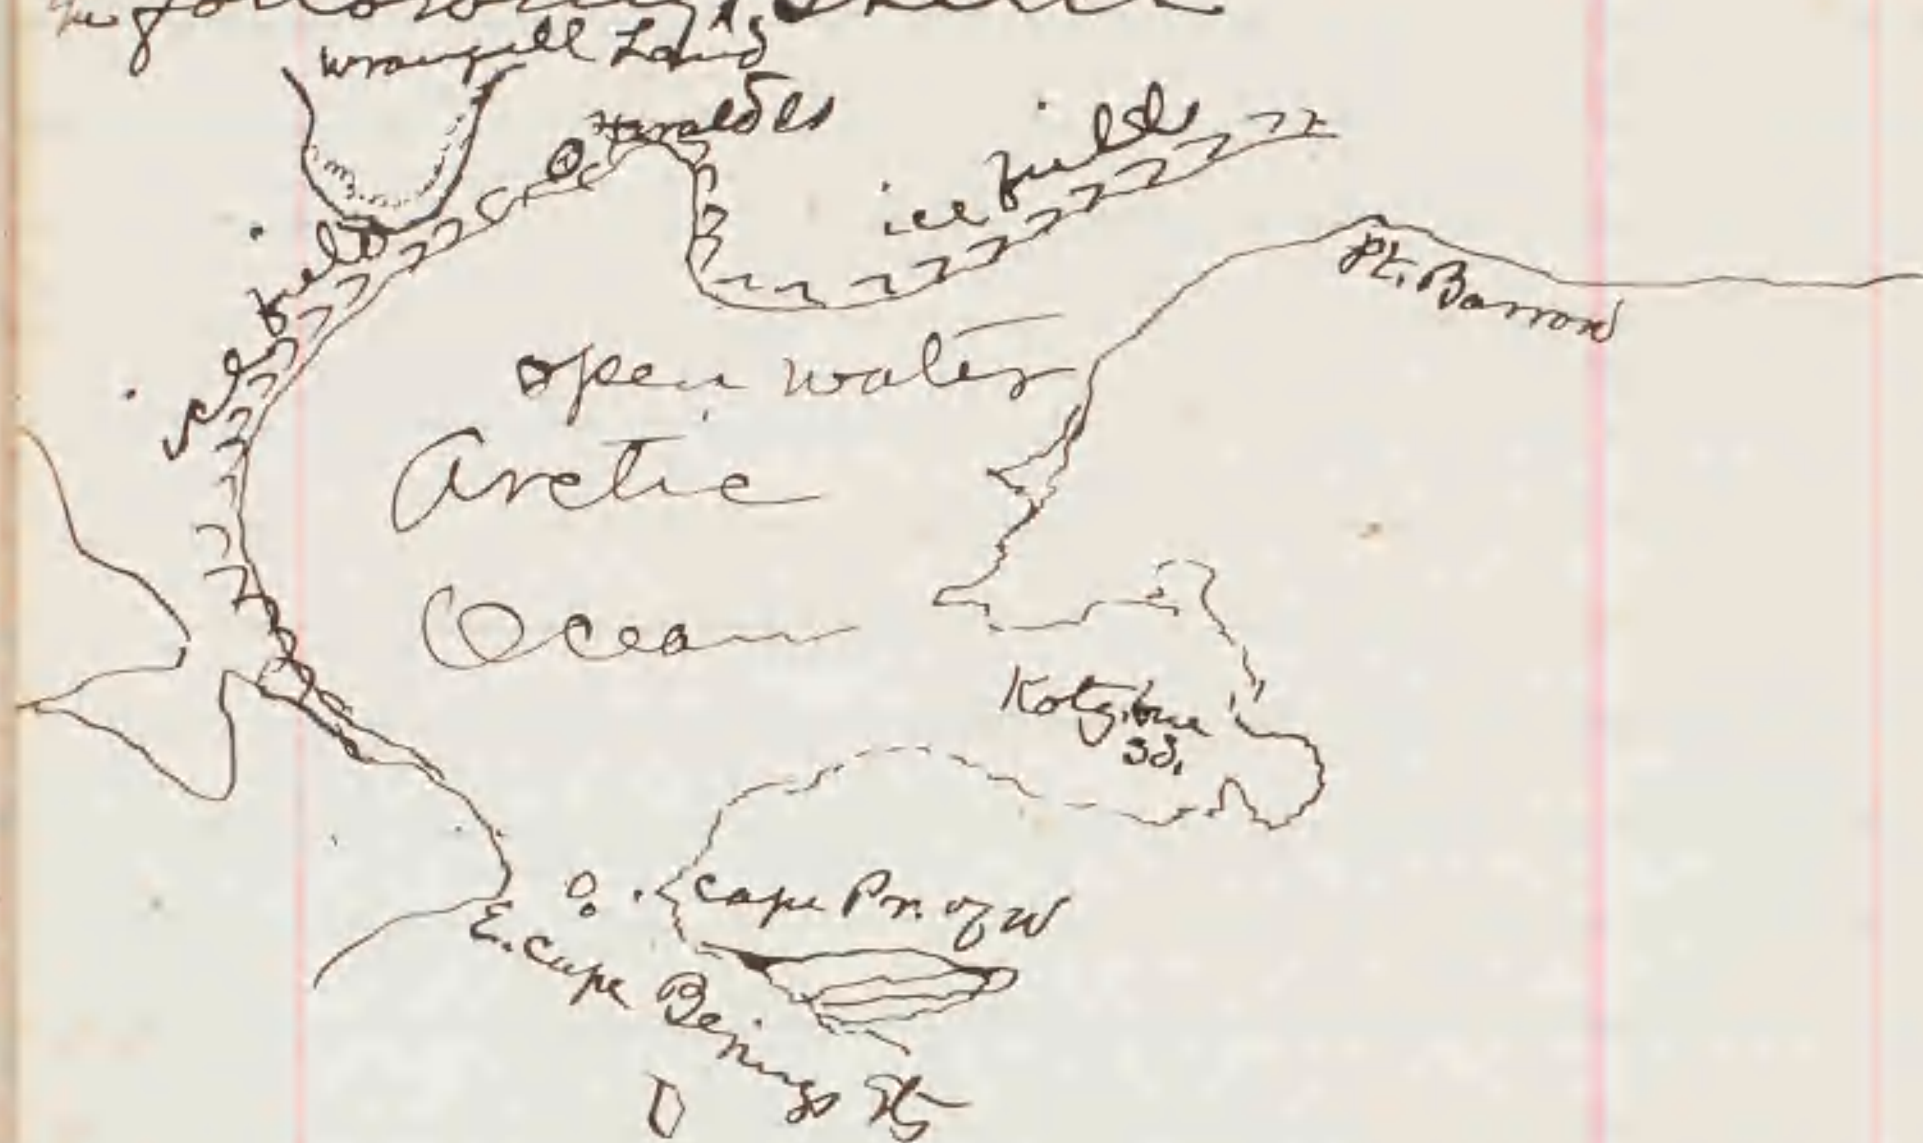 the following sketch
Wrangell Land
Herald Is
ice fields
ice fields
Pt. Barrow
open water
Arctic
Ocean
Kotzbue
Sd.
Cape Pr. of W
E. Cape
Berings Sts